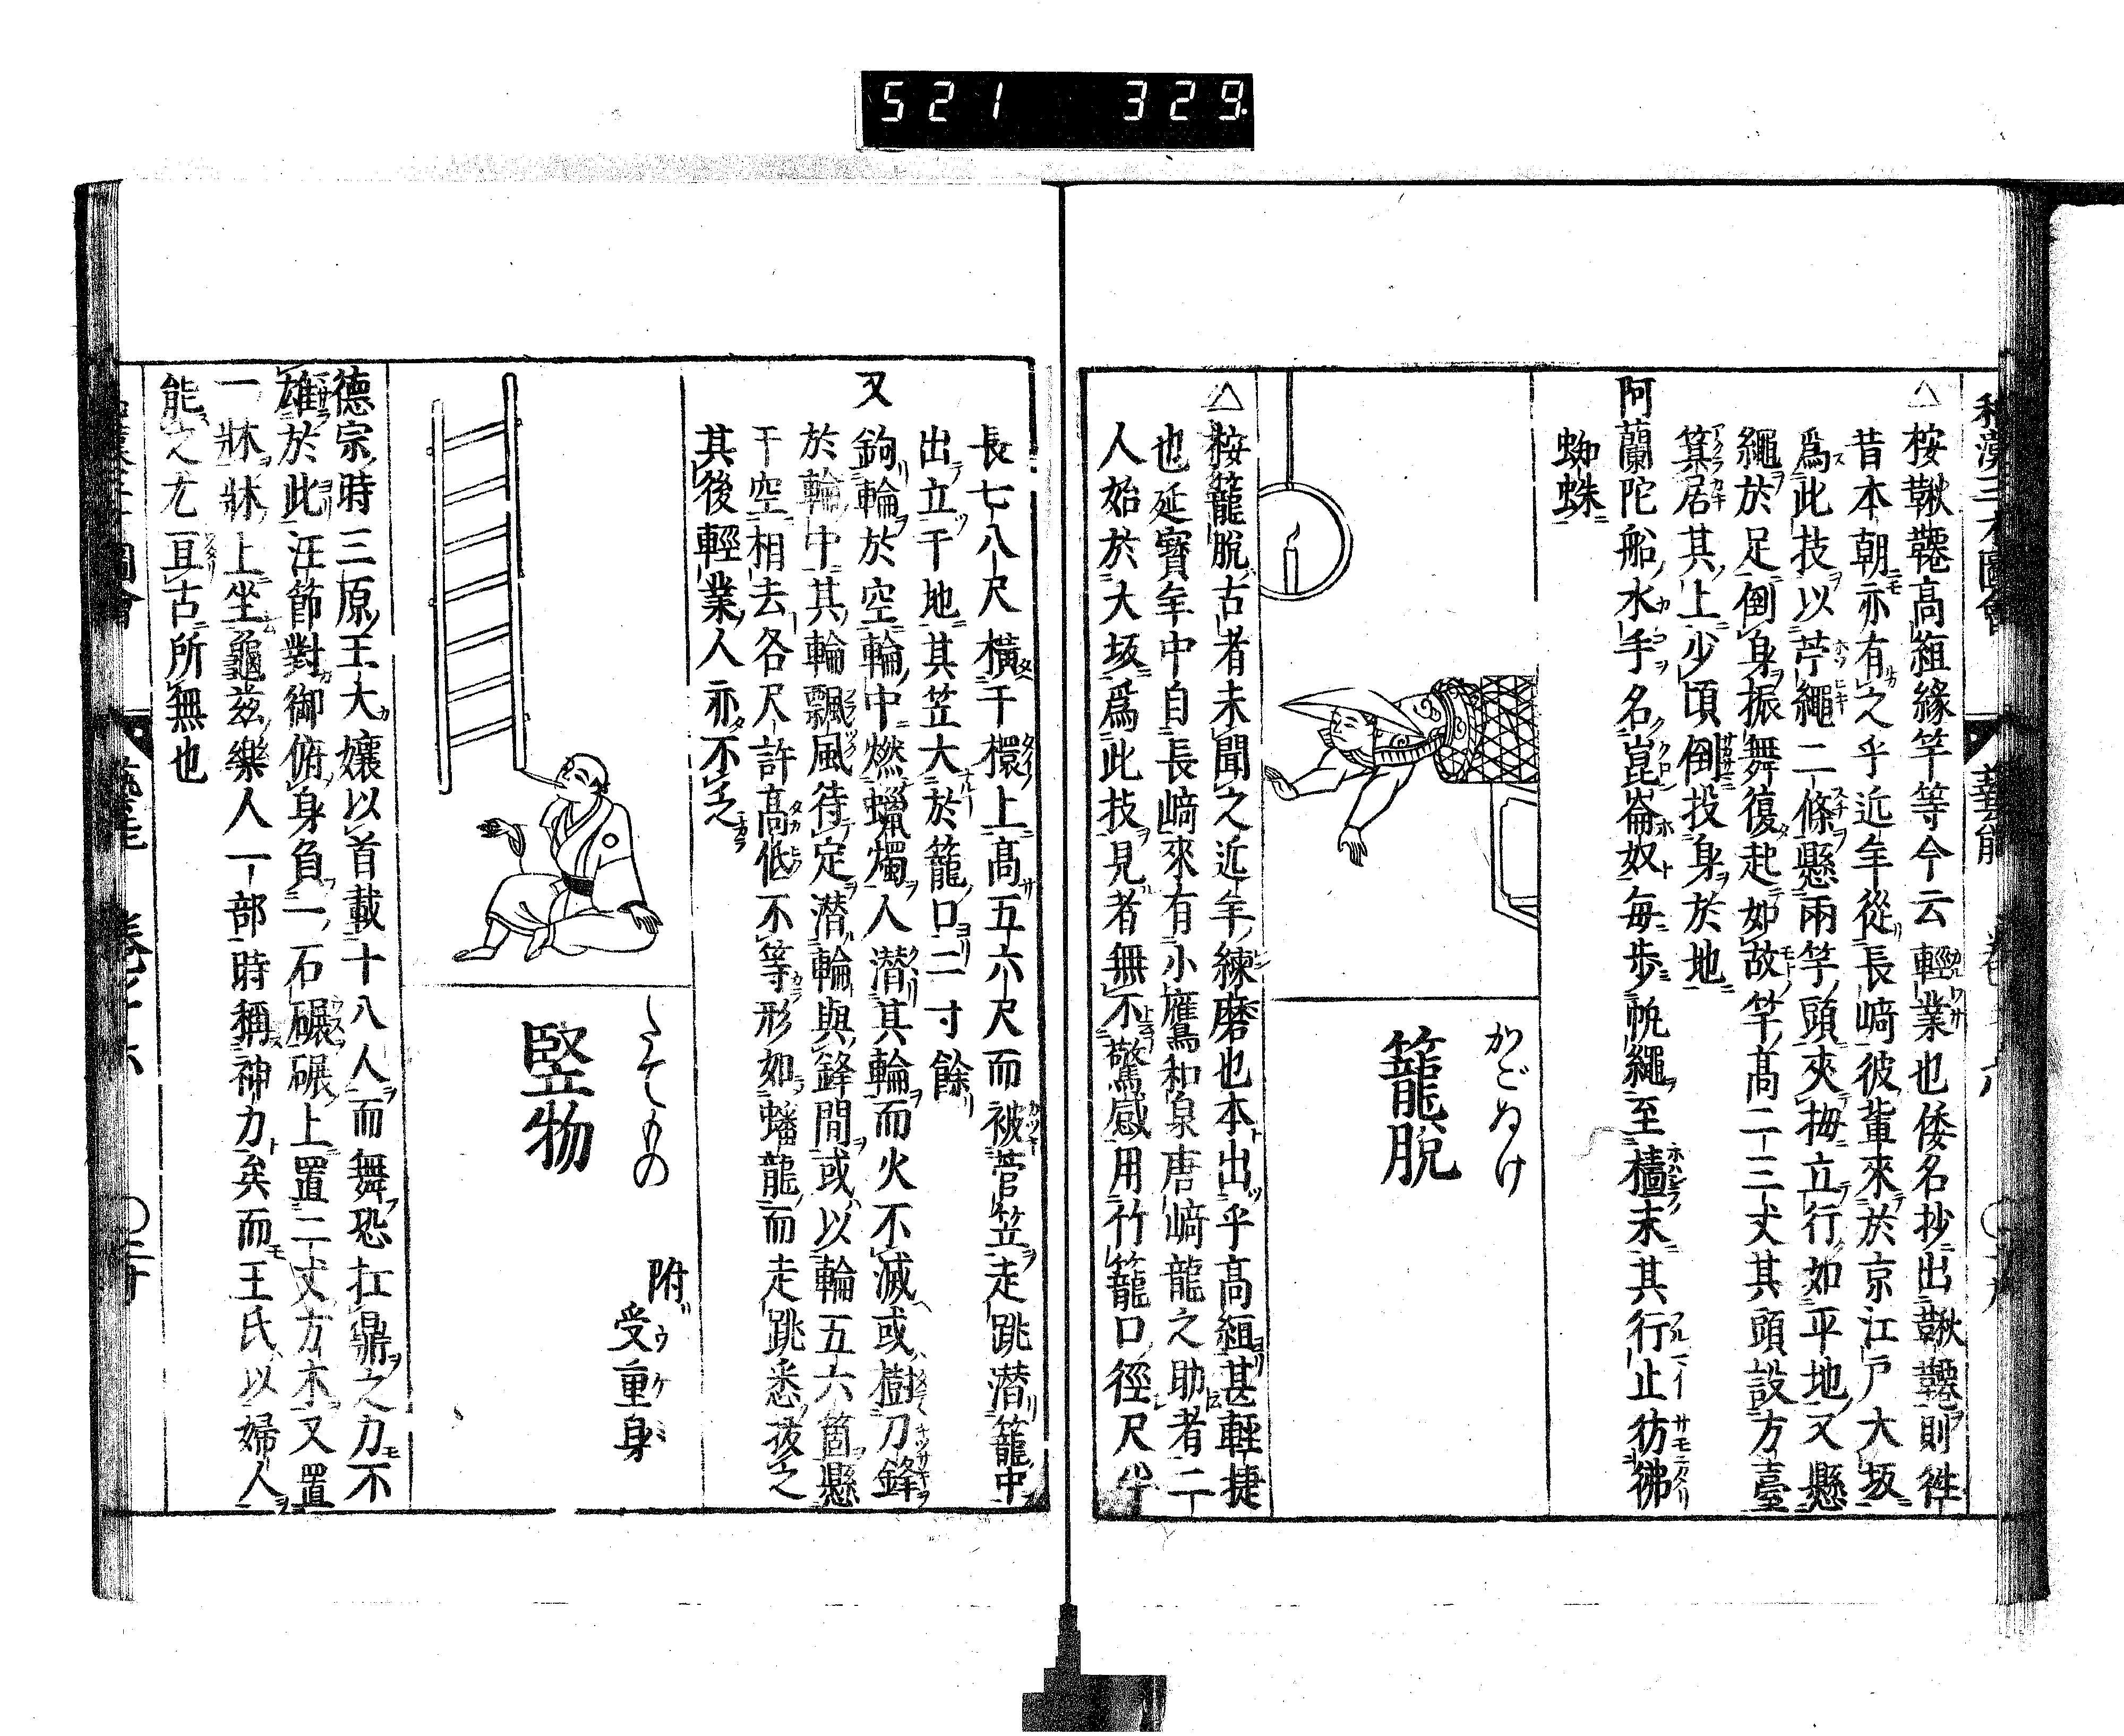 521 329
和漢三才圖會 藝能
△桉鞦韆高絙緣竿等今云輕業也倭名抄出鞦韆則徃
昔本朝亦有之乎近年從長﨑彼輩來於京江戸大坂
爲此技以苧繩二條懸兩竿頭夾梅立行如平地又懸
繩於足倒身振舞復起如故竿高二三丈其頭設方臺
箕居其上少頃倒投身於地
阿蘭陀船水手名崑崙奴毎歩帆繩至檣末其行止彷彿
蜘蛛
かごぬけ
籠脫
△桉籠脫古者未聞之近年練磨也本出乎高絙甚輕捷
也延寶年中自長﨑來有小鷹和泉唐﨑龍之助者二
人始於大坂爲此技見者無不驚感用竹籠口徑尺半
長七八尺橫于檈上高五六尺而被菅笠走跳潜籠中
出立于地其笠大於籠口二寸餘
又鉤輪於空輪中燃蠟燭人潜其輪而火不滅或樹刀鋒
於輪中其輪飄風待定潜輪與鋒間或以輪五六箇懸
于空相去各尺許高低不等形如蟠龍而走跳悉拔之
其後輕業人亦不乏
たてもの
竪物
附 受重身
德宗時三原王大孃以首載十八人而舞恐扛鼎之力不
雄於此汪節對御俯身負一石碾碾上置二丈方木又置
一牀牀上坐龜兹樂人一部時稱神力矣而王氏以婦人
能之尤亘古所無也